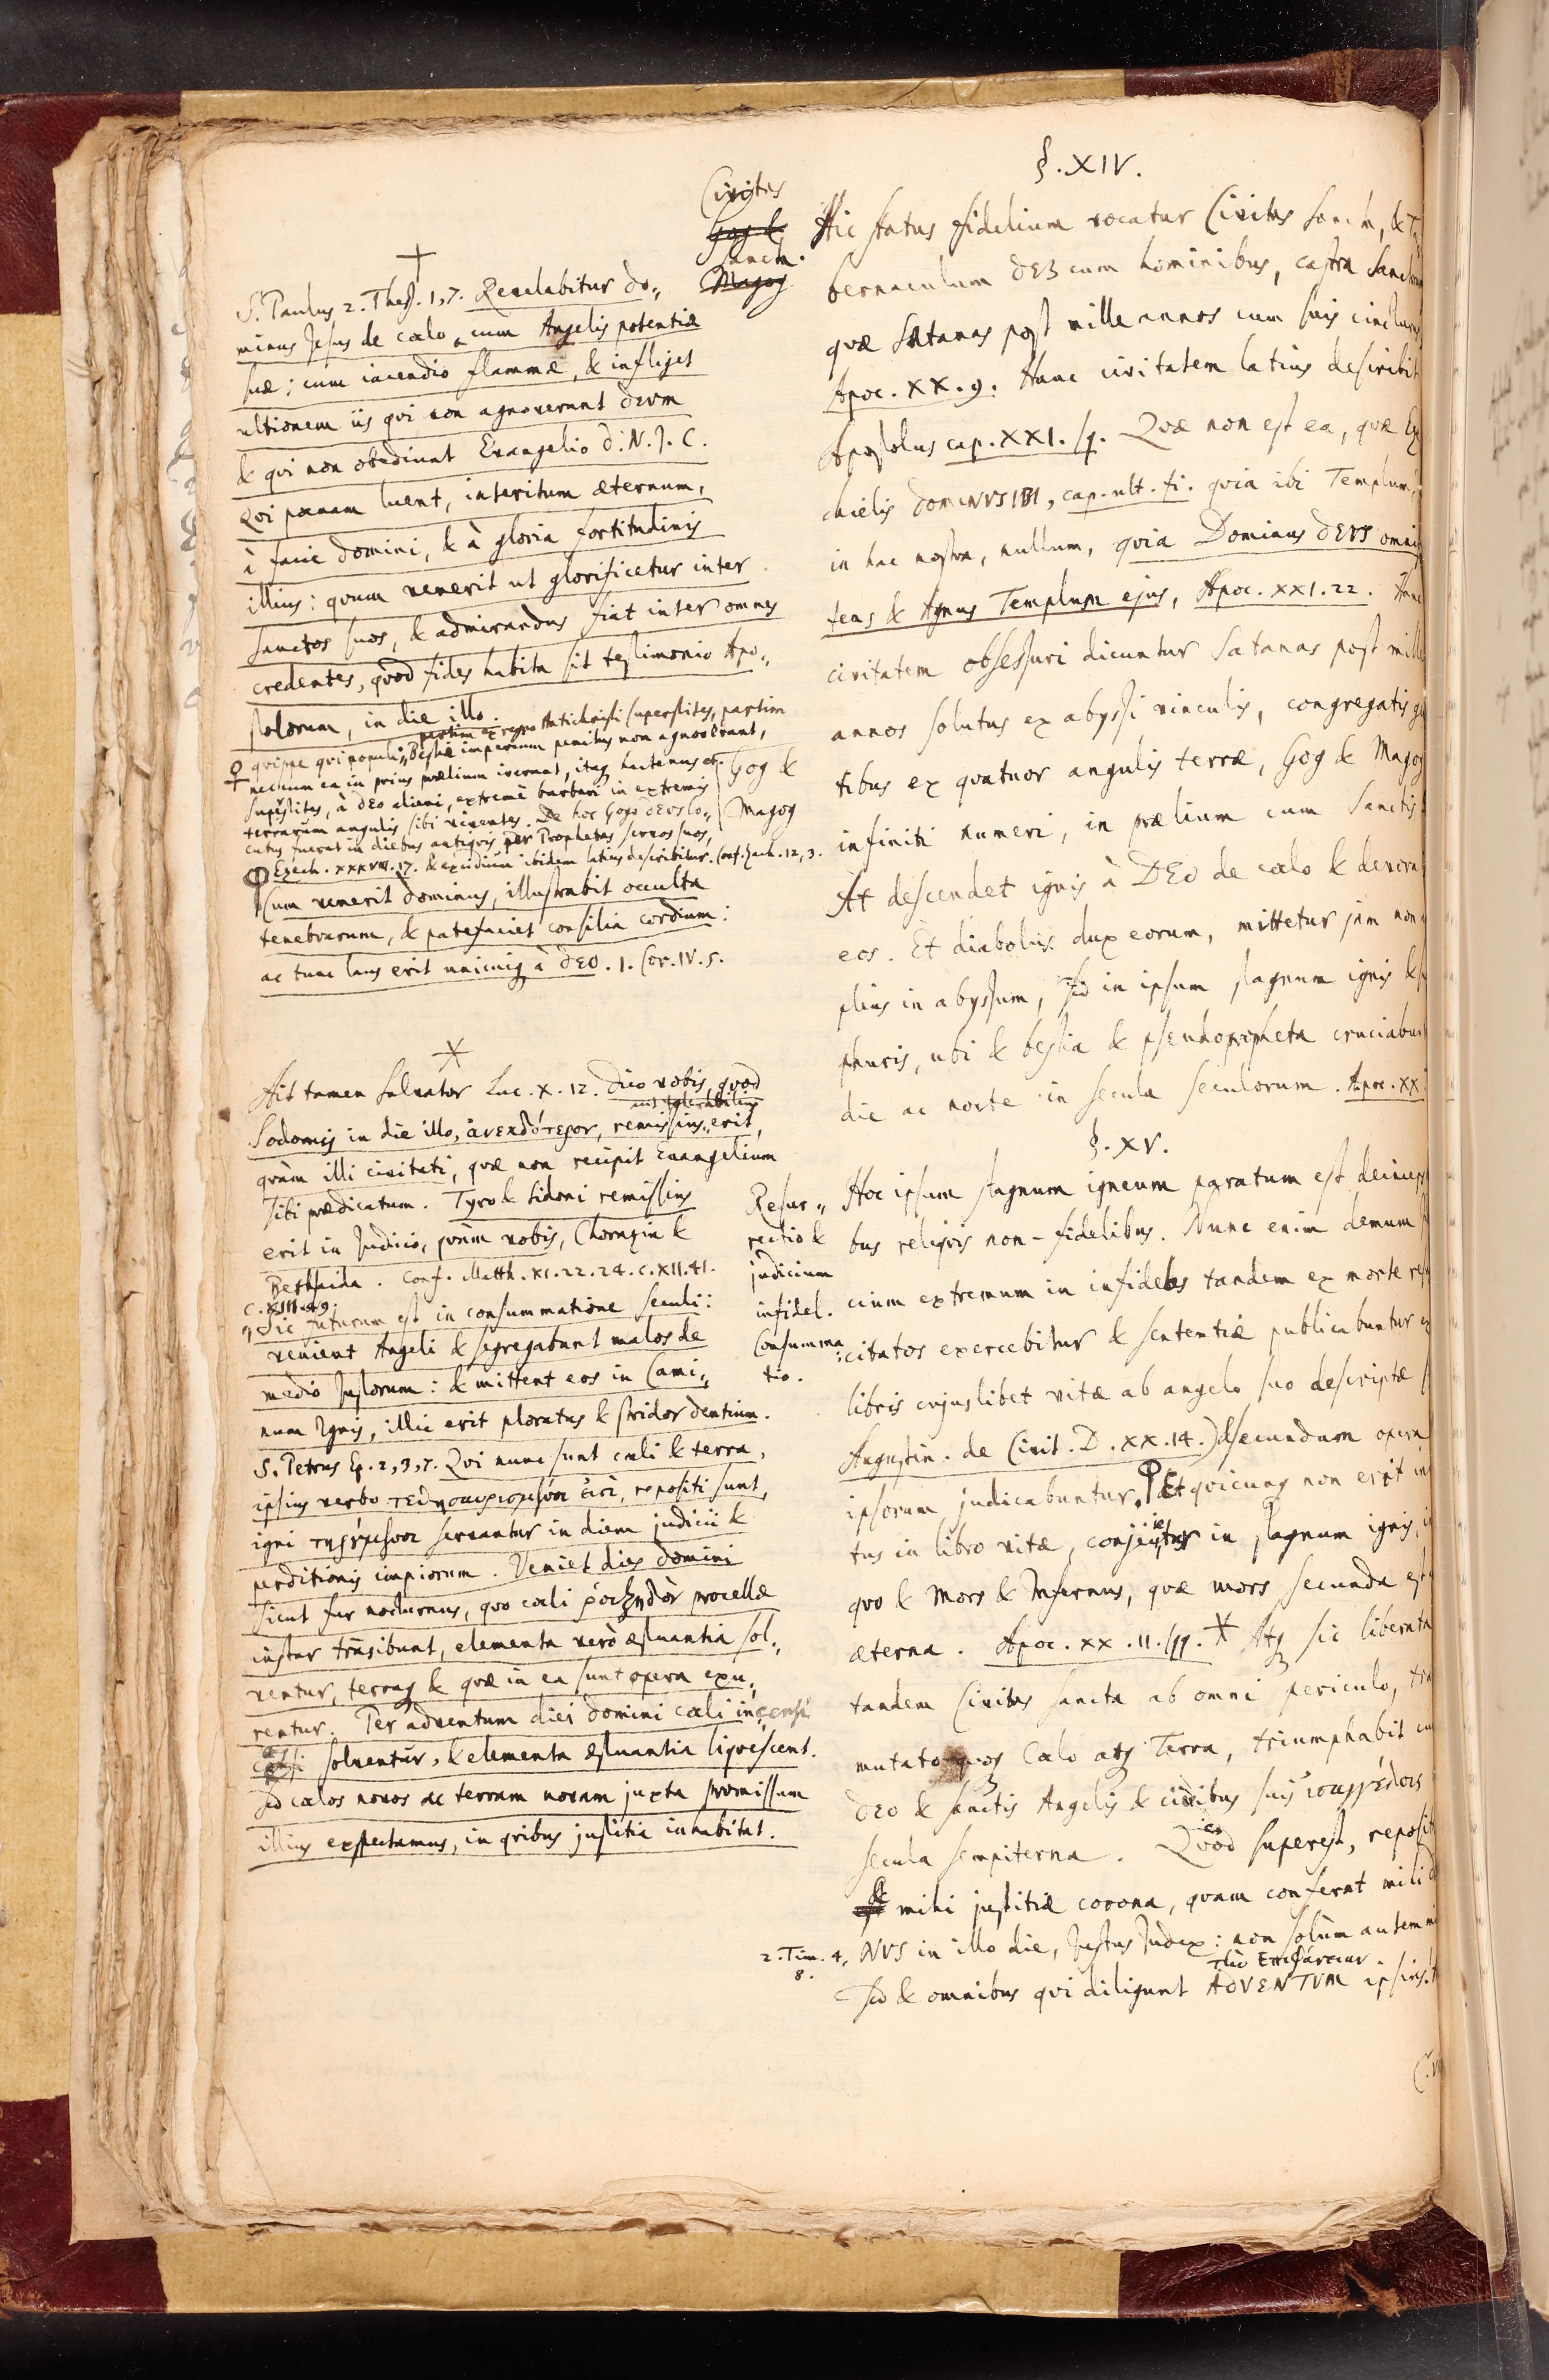 §. XIV.
Civitas
Gog &
sancta.
Magog
Hic status fidelium vocatur Civitas Sancta, & Ta
bernaculum DEI cum hominibus, castra Sanctorum
quæ Satanas post mille annos cum suis
Apoc. XX. 9. Hanc civitatem latius describit
Apostolus cap. XXI. sq. Quæ non est ea, quæ Eze
chielis DOMINUS IBI, cap. ult. fi. quia ibi Templum,
in hac nostra, nullum, quia Dominus DEUS omnipo
tens & Agnus Templum ejus, Apoc. XXI. 22. Hanc
civitatem obsessuri dicuntur Satanas post mille
annos solutus ex abyssi vinculis, congregatis
tibus ex quatuor angulis terræ, Gog & Magog
infiniti numeri, in prælium cum Sanctis.
At descendet ignis à DEO de cœlo & devora
eos. Et diabolus dux eorum, mittetur jam non
plius in abyssum, sed in ipsum stagnum ignis &
phuris, ubi & bestia & pseudopropheta cruciabun
die ac nocte in secula seculorum. Apoc. XX.
§. XV.
Resur„
rectio &
judicium
infidel.
Consumma
tio.
Hoc ipsum stagnum igneum paratum est deinceps
bus reliqvis non-fidelibus. Nunc enim demum
cium extremum in infideles tandem ex morte
citatos exercebitur & sententiæ publicabuntur
libris cujuslibet vitæ ab angelo suo descriptæ
Augustin. de Civit. D. XX. 14.) & secundum opera
ipsorum judicabuntur. Et qvicunq non erit
tus in libro vitæ, conjicietur in stagnum ignis,
quo & Mors & Infernus, quæ mors secunda est
æterna. Apoc. XX. 11. sqq. Atq sic liberata
tandem Civitas sancta ab omni periculo,
mutato Cœlo atq Terra, triumphabit
DEO & sanctis Angelis & civibus suis ἰσαγγέλοις
secula sempiterna. Quod superest, reposit
mihi justitiæ corona, quam conferat mihi
2. Tim. 4,
8.
NUS in illo die, Justus Judex: non solùm autem
sed & omnibus qui diligunt ADVENTUM ipsius.
S. Paulus 2. Thess. 1, 7. Revelabitur Do„
minus Jesus de cœlo cum Angelis potentiæ
suæ; cum incendio flammæ, & infliget
ultionem iis qvi non agnoverunt DEUM
& qvi non obediunt Evangelio D. N. J. C.
Qvi pœnam luent, interitum æternum,
à facie Domini, & à gloria fortitudinis
illius: quum venerit ut glorificetur inter
sanctos suos, & admirandus fiat inter omnes
credentes, qvòd fides habita sit testimonio Apo„
stolorum, in die illo.
partim ex regno Antichristi superstites, partim
qvippe qvi populi, Bestiæ imperium penitus non agnoverunt,
necdum ea in prius prælium iverant, itaq hactenus
superstites, à DEO alieni, extremè barbari in extremis
terrarum angulis sibi viventes. De hoc Gogo DEUS lo„
cutus fuerat in diebus antiqvis per Prophetas servos suos,
Ezech. XXXVIII. 17. & excidium ibidem latius describitur. Conf. Zach. 12, 3.
Gog &
Magog
Cum venerit Dominus, illustrabit occulta
tenebrarum, & patefaciet consilia cordium:
ac tunc laus erit unicuiq à DEO. 1. Cor. IV. 5.
Ait tamen Salvator Luc. X. 12. Dico vobis, quod
aut tolerabilius
Sodomis in die illo, ἀνεκτότερον, remissius erit,
qvàm illi civitati, quæ non recipit Evangelium
sibi prædicatum. Tyro & Sidoni remissius
erit in Judicio, qvàm vobis, Chorazin &
Bethsaida. Conf. Matth. XI. 22. 24. c. XII. 41.
c. XIII. 49.
„Sic futurum est in consummatione seculi:
venient Angeli & segregabunt malos de
medio Justorum: & mittent eos in Cami„
num Ignis, illic erit ploratus & stridor dentium.
S. Petrus Ep. 2, 3, 7. Qvi nunc sunt cœli & terra,
ipsius verbo τεθησαυρισμένοι εἰσὶ, repositi sunt,
igni τηρούμενοι servantur in diem judicii &
perditionis impiorum. Veniet dies Domini
sicut fur nocturnus, quo cœli ῥοιζηδὸν procellæ
instar transibunt, elementa verò æstuantia sol„
ventur, terraq & quæ in ea sunt opera exu„
rentur. Per adventum diei Domini cœli incensi
solventur, & elementa æstuantia liqvescent.
Sed cœlos novos ac terram novam juxta promissum
illius expectamus, in qvibus justitia inhabitat.